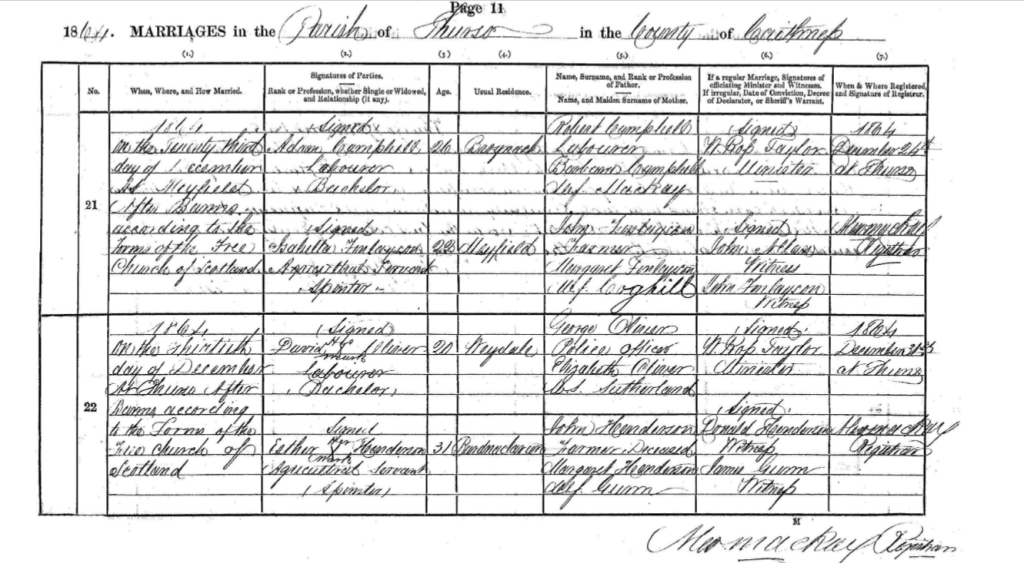 Page 11
1864. MARRIAGES in the Parish of Thurso in the County of Caithness
(1.) (2.) (3) (4.) (5.) (6.) (7.)
No.
When, Where, and How Married.
Signatures of Parties.
Rank or Profession, whether Single or Widowed, and Relationship (if any).
Age.
Usual Residence.
Name, Surname, and Rank or Profession of Father.
Name, and Maiden Surname of Mother.
If a regular Marriage, Signatures of officiating Minister and Witnesses.
If irregular, Date of Conviction, Decree of Declarator, or Sheriff's Warrant.
When & Where Registered, and Signature of Registrar.
21
1864
on the Twenty third
day of December
At Mayfield
After Banns
according to the
Forms of the Free
Church of Scotland
(Signed)
Adam Campbell
Labourer
Bachelor
(Signed)
Isabella Finlayson
Agricultural Servant
Spinster
26
22
Mayfield
Robert Campbell
Labourer
Barbara Campbell
M.S. MacKay
John Finlayson
Farmer
Margaret Finlayson
M.S. Coghill
(Signed)
W. Ross Taylor
Minister
(Signed)
John Allan
Witness
John Finlayson
Witness
1864
December 24th
at Thurso
Registrar
22
1864
on the Thirtieth
day of December
At Thurso After
Banns according
to the Forms of the
Free Church of
Scotland
(Signed)
David his Oliver
mark
Labourer
(Bachelor)
Signed
Esther her Henderson
mark
Agricultural Servant
(Spinster)
20
Weydale
31
George Oliver
Police officer
Elizabeth Oliver
M.S. Sutherland
John Henderson
Farmer Deceased
Margaret Henderson
M.S. Gunn
(Signed)
W. Ross Taylor
Minister
(Signed)
Donald Henderson
Witness
James Gunn
Witness
1864
December 31st
at Thurso
Registrar
M
MacKay Registrar